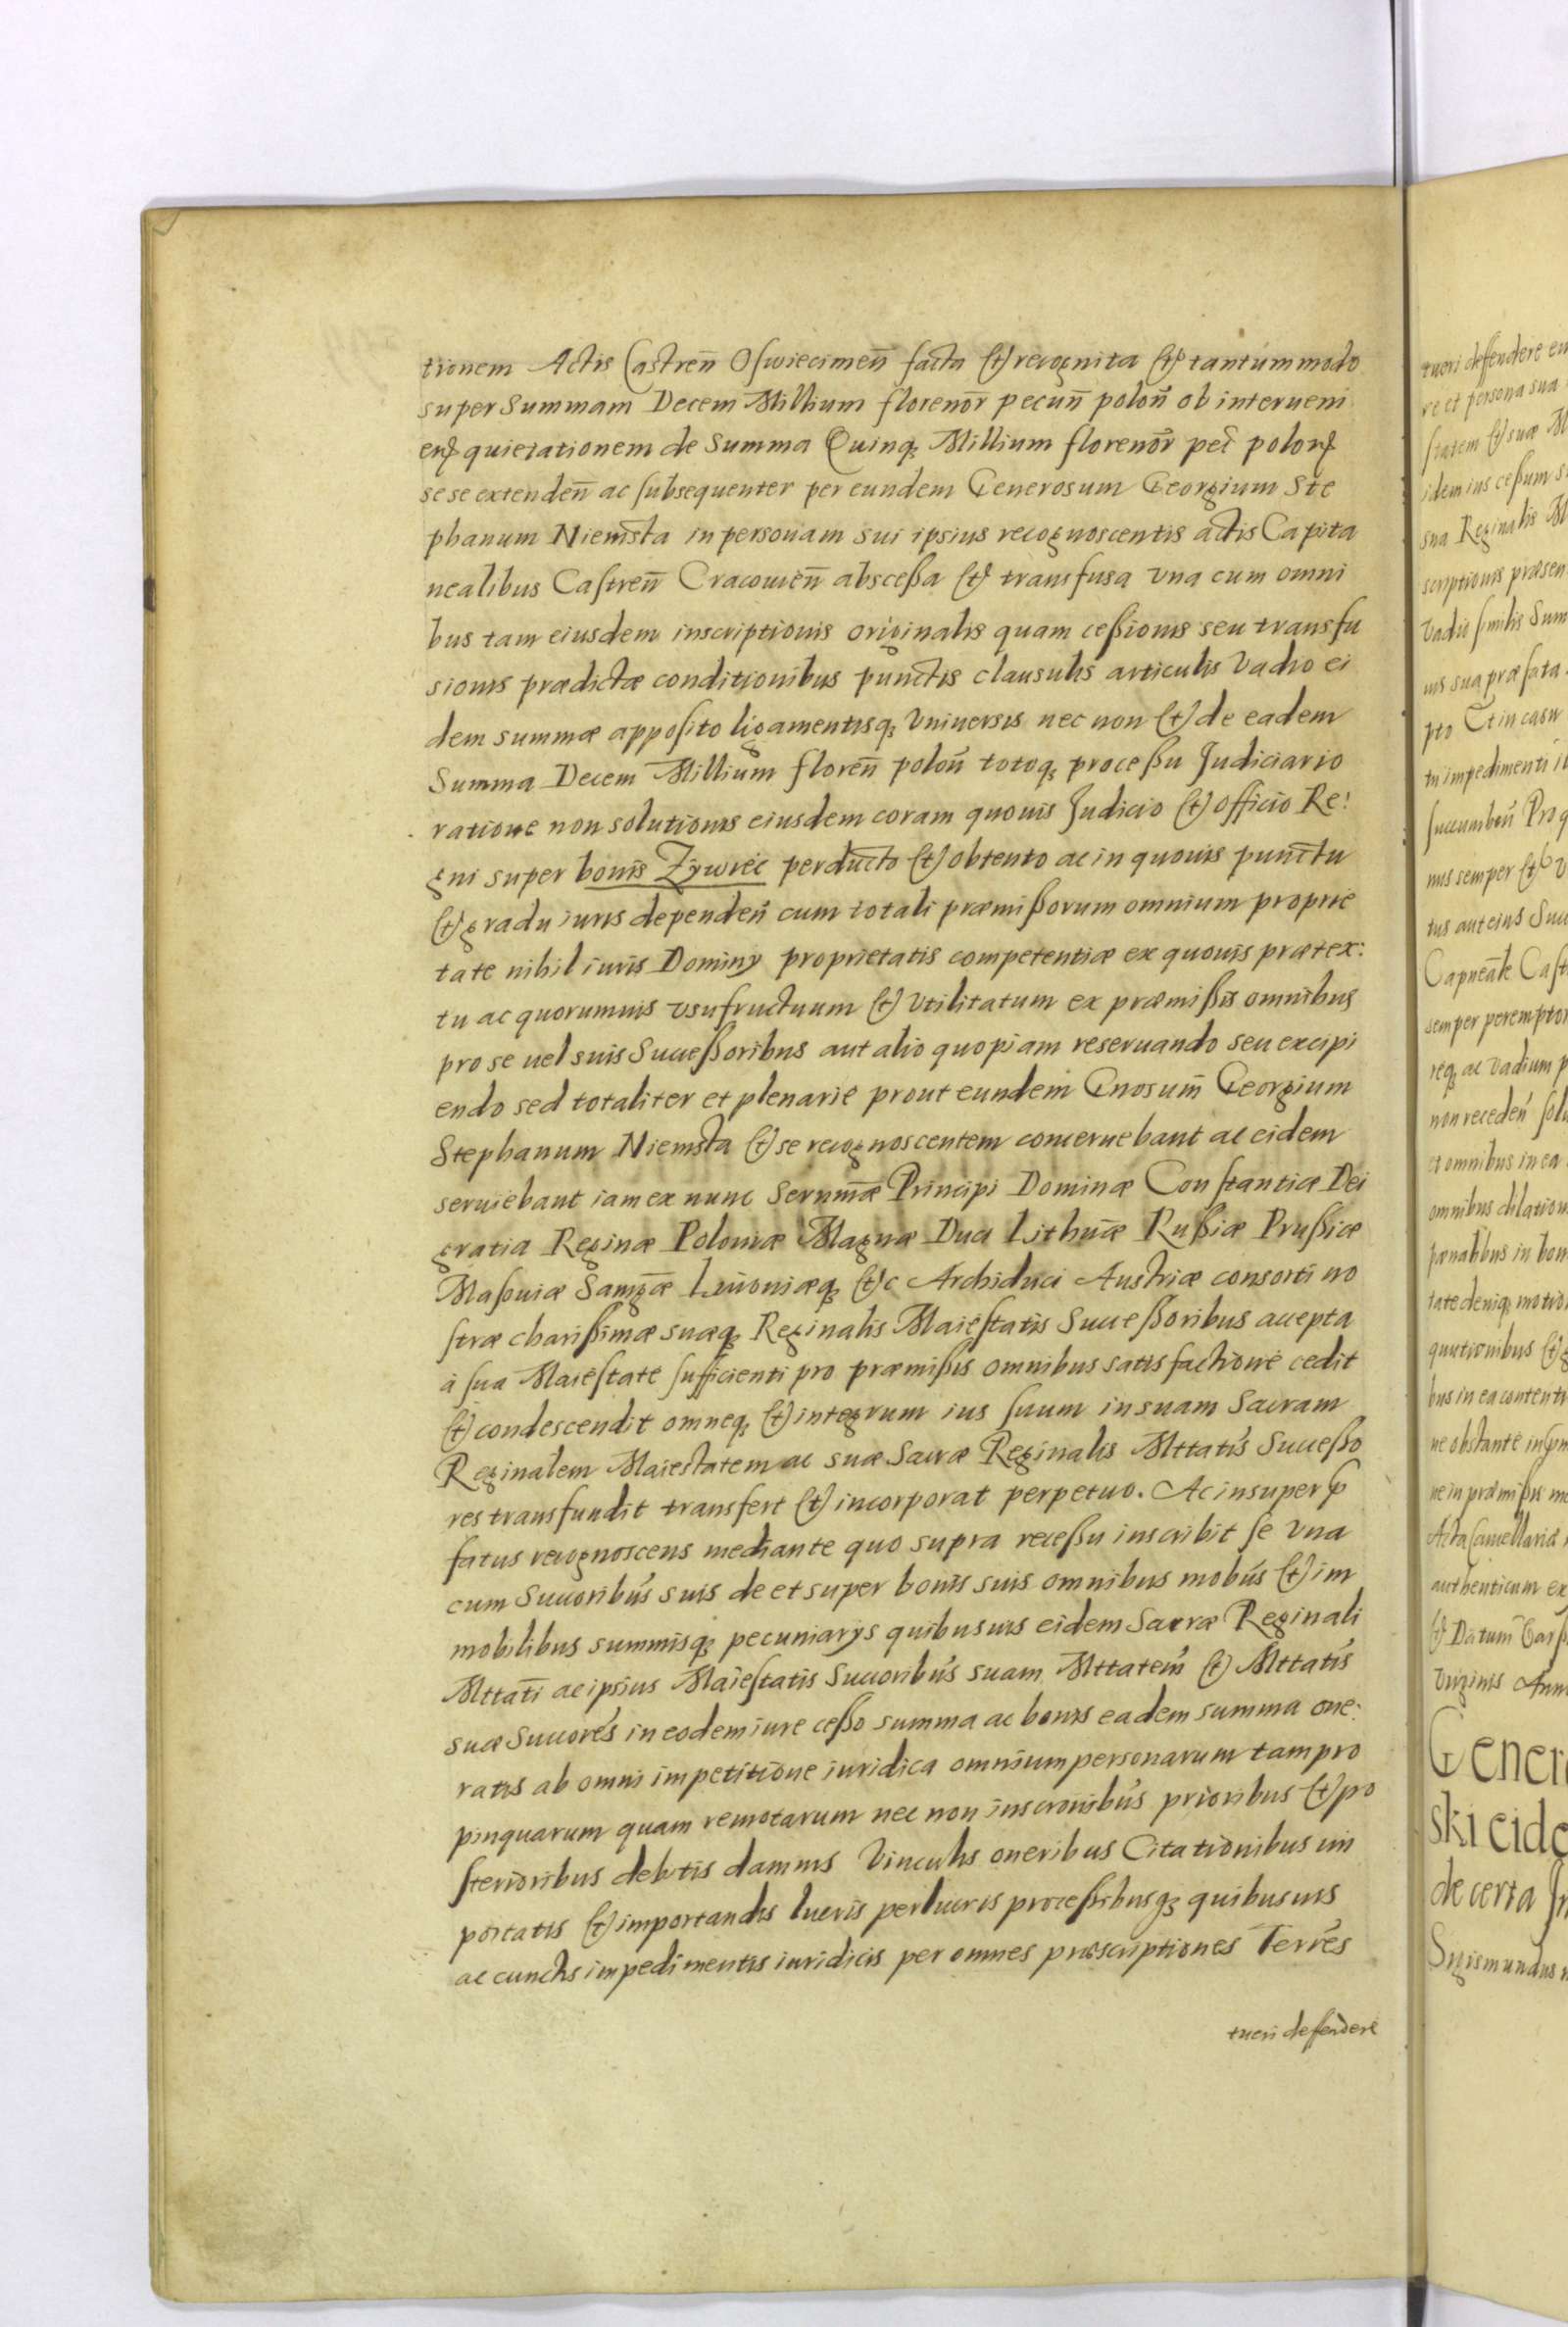 tionem Actis Castren̄ Oswiecimen̄ facta et recognita et tantummodo
super Summam Decem Millium florenor̄ pecun̄ polon̄ ob interueni
en̄ quietationem de Summa Quinq; Millium florenor̄ pec̄ polon̄
sese extenden̄ ac subsequenter per eundem Generosum Georgium Ste
phanum Niemsta in personam sui ipsius recognoscentis actis Capita
nealibus Castren̄ Cracouien̄ abscessa et transfusa vna cum omni
bus tam eiusdem inscriptionis originalis quam cessionis seu transfu
sionis prædictæ conditionibus punctis clausulis articulis Vadio ei
dem summæ apposito ligamentisq; Vniuersis nec non et de eadem
Summa Decem Millium floren̄ polon̄ totoq; processu Judiciario
ratione non solutionis eiusdem coram quouis Judicio et officio Re:
gni super bonis Zÿwiec perducto et obtento ac in quouis punctu
et gradu iuris dependen̄ cum totali præmissorum omnium proprie
tate nihil iuris Dominy proprietatis competentiæ ex quouis prætex:
tu ac quorumuis vsufructuum et Vtilitatum ex præmissis omnibus
pro se uel suis Successoribus aut alio quopiam reseruando seu excipi
endo sed totaliter et plenarie prout eundem Gnosum̄ Georgium
Stephanum Niemsta et se recognoscentem concernebant ac eidem
seruiebant iam ex nunc Serenm̄æ Principi Dominæ Constantiæ Dei
gratia Reginæ Poloniæ Magnæ Duci Lithuāæ Russiæ Prussiæ
Masouiæ Samḡæ Liuoniæq; etc Archiduci Austriæ consorti no
stræ charissimæ suæq; Reginalis Maiestatis Successoribus accepta
à sua Maiestate sufficienti pro præmissis omnibus satisfactione cedit
et condescendit omneq; et integrum ius suum in suam Sacram
Reginalem Maiestatem ac suæ Sacræ Reginalis Mttatis Successo
res transfundit transfert et incorporat perpetuo. Ac insuper p̄
fatus recognoscens mediante quo supra recessu inscribit se Vna
cum Succoribus suis de et super bonis suis omnibus mobus et im
mobilibus summisq; pecuniarÿs quibusuis eidem Sacræ Reginali
Mttati ac ipsius Maiestatis Succoribus suam Mttatem et Mttatis
suæ Succores in eodem iure cesso summa ac bonis eadem summa one:
ratis ab omni impetitione iuridica omnium personarum tam pro
pinquarum quam remotarum nec non inscronibus prioribus et po
sterioribus debitis damnis Vinculis oneribus Citationibus im
portatis et importandis lucris perlucris processibusq; quibusuis
ac cunctis impedimentis iuridicis per omnes præscriptiones Terres
tueri deffendere
tueri deffendere
re et persona sua
statem et suæ
idem ius cessum
sua Reginalis
scriptionis præsen
Vadii similis Sum
sua præfata
pto Et in casu
tu impedimenti
succumben̄ Pro
nus semper et
tus aut eius Suc
Capneale Cast
semper perempto
req; ac Vadium
non receden̄ sol
et omnibus in ea
omnibus dilation
pænalibus in bon
tate deniq; motio
et
bus in ea content
ne obstante
ne in præmissis
Acta Cancellariæ
authenticum ex
Datum
Virginis Ann
Gener
ski eide
de certa
Sigismundus